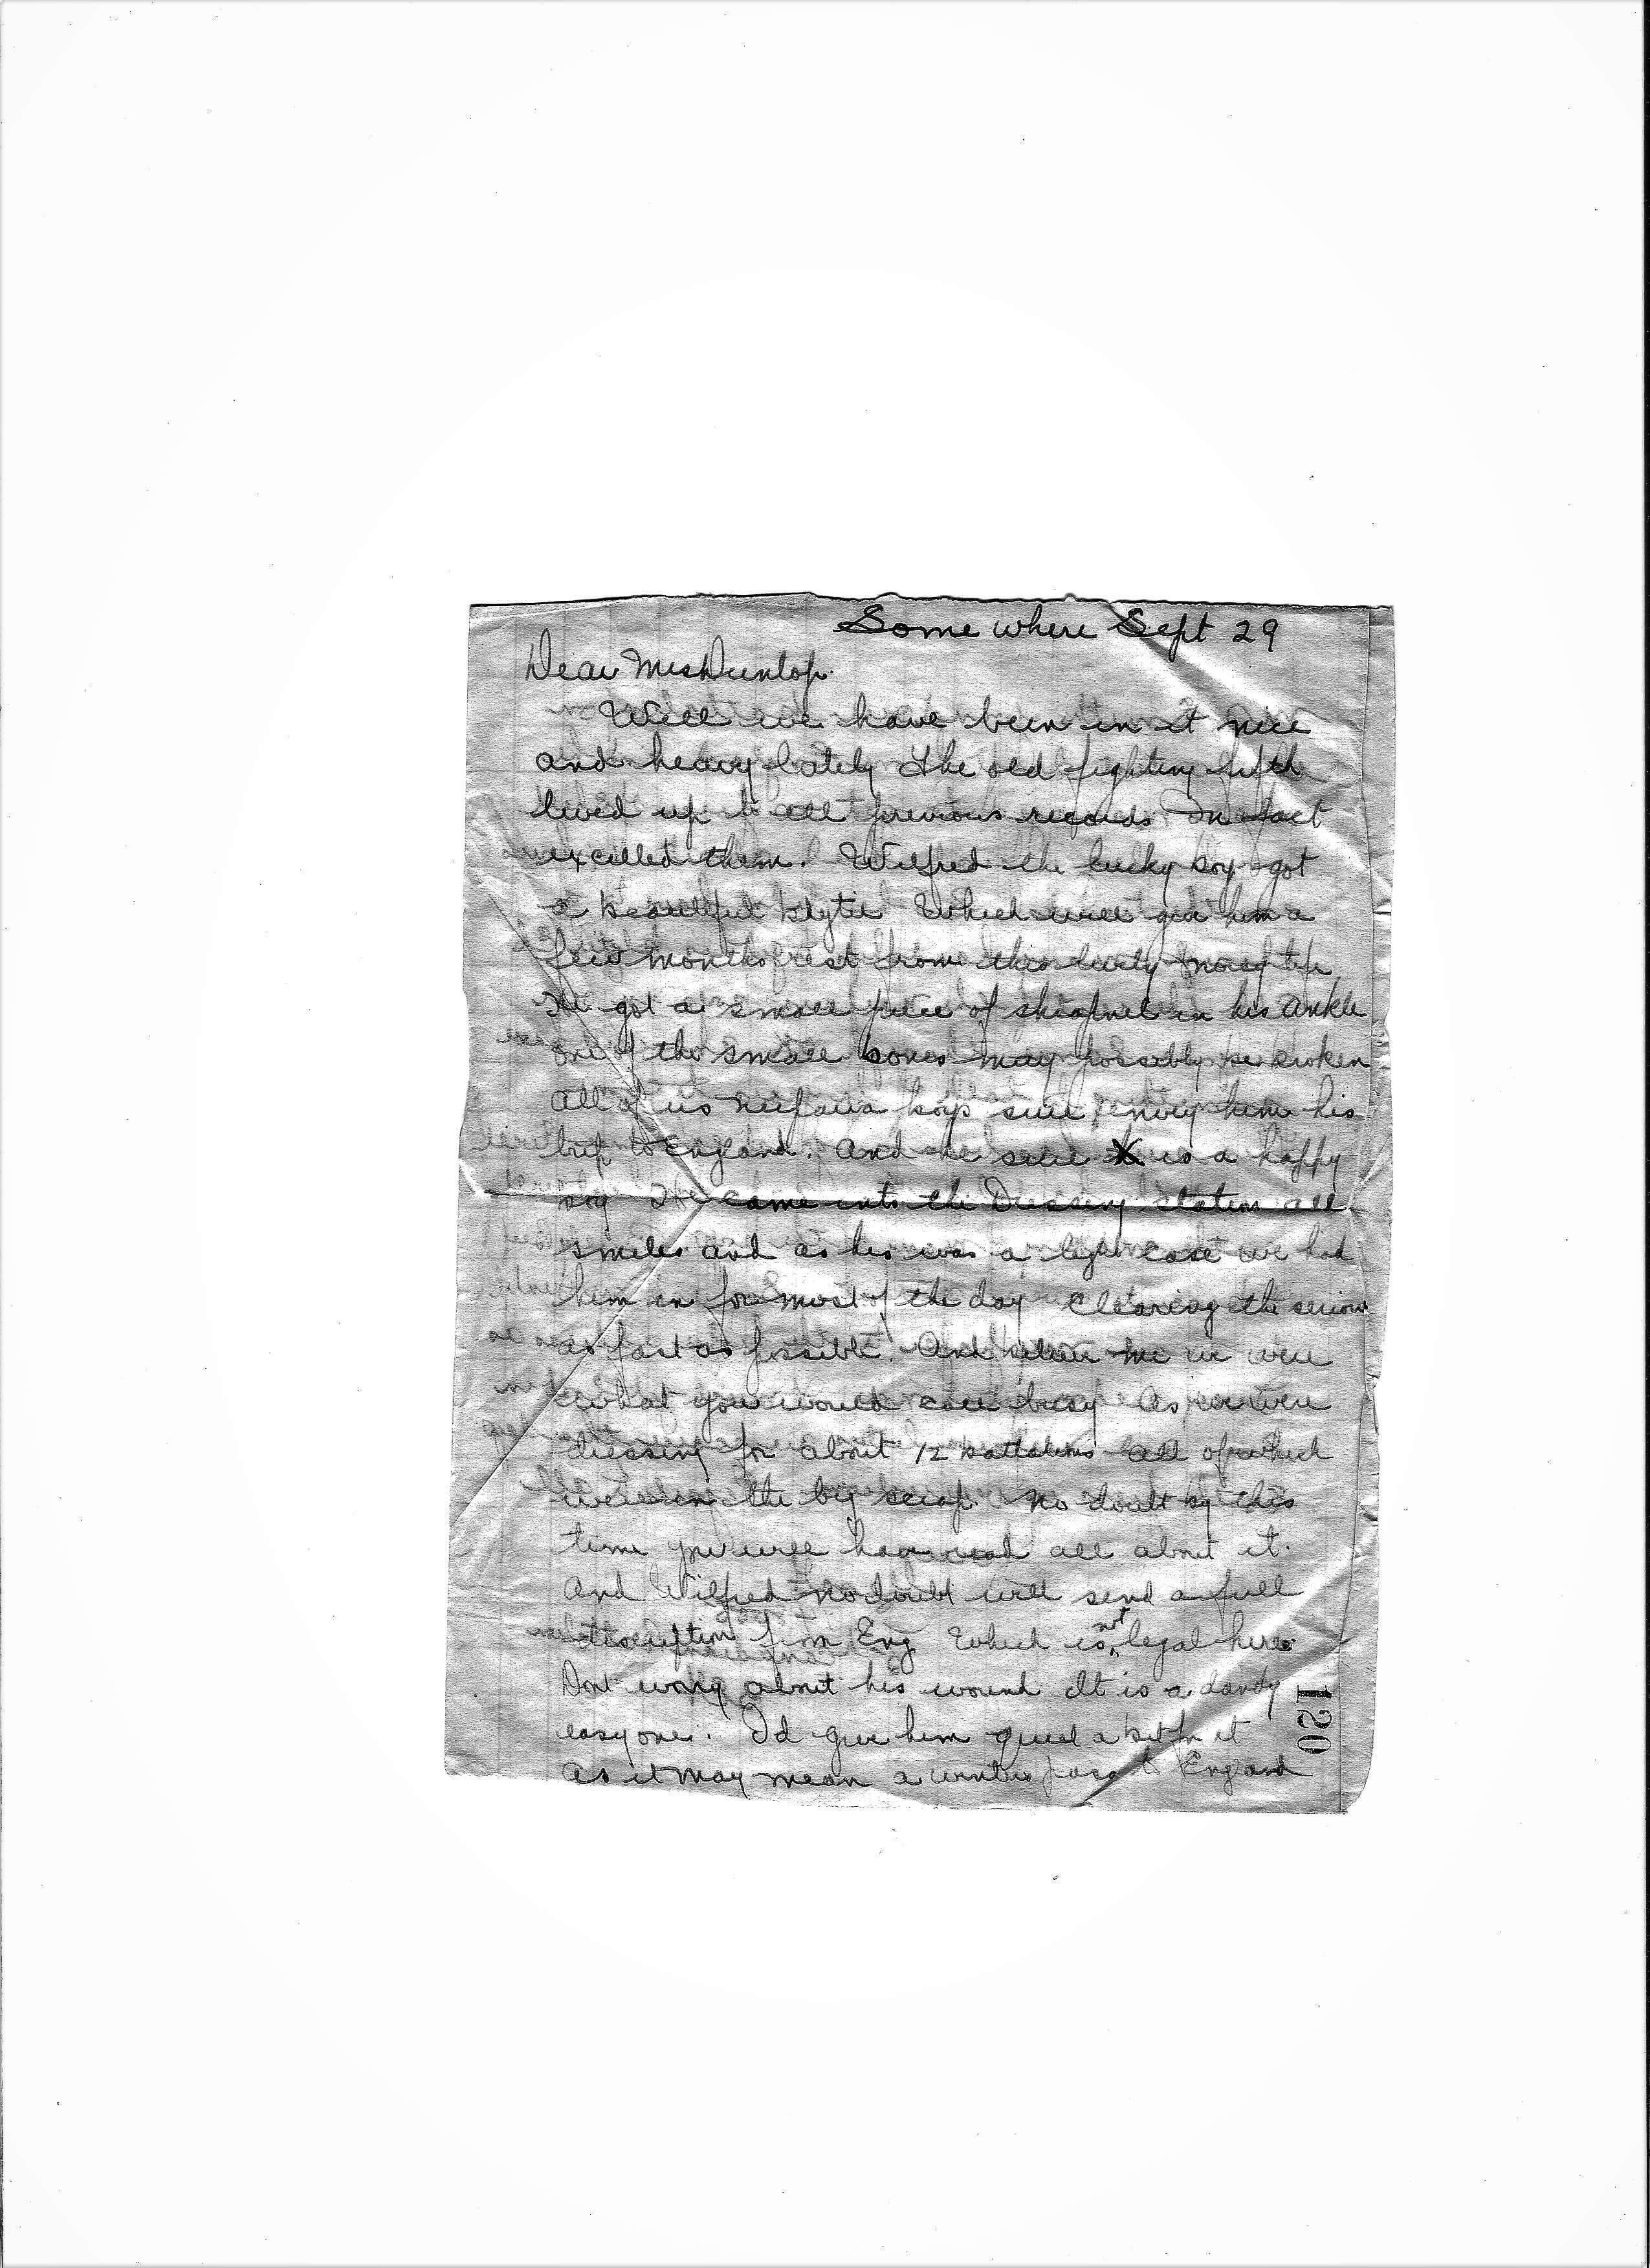 Some where Sept 29
Dear Mrs Dunlop.
Well we have been in it nice
and heavy lately The old fighting fifth
lived up to all previous records In fact
excelled them. Wilfred the lucky boy got
a beautiful blytie Which will give him a
few months rest from this
He got a small piece of shrapnel in his ankle
one of the small bones may possibly be broken
all of us boys sure envy him his
trip to England. And he sure is a happy
boy He came into the Dressing station all
smiles and as his was a light case we had
him in for most of the day Clearing the serious
as fast as possible. And believe me we were
what you would call busy As we were
dressing for about 12 battalions all of which
were in the big scrap. No doubt by this
time you will have read all about it.
And Wilfred no doubt will send a full
description from Eng Which is not legal here.
Dont worry about his wound It is a dandy
easy one. I'd give him quiet a bit for it
as it may mean a winter pass to England
120